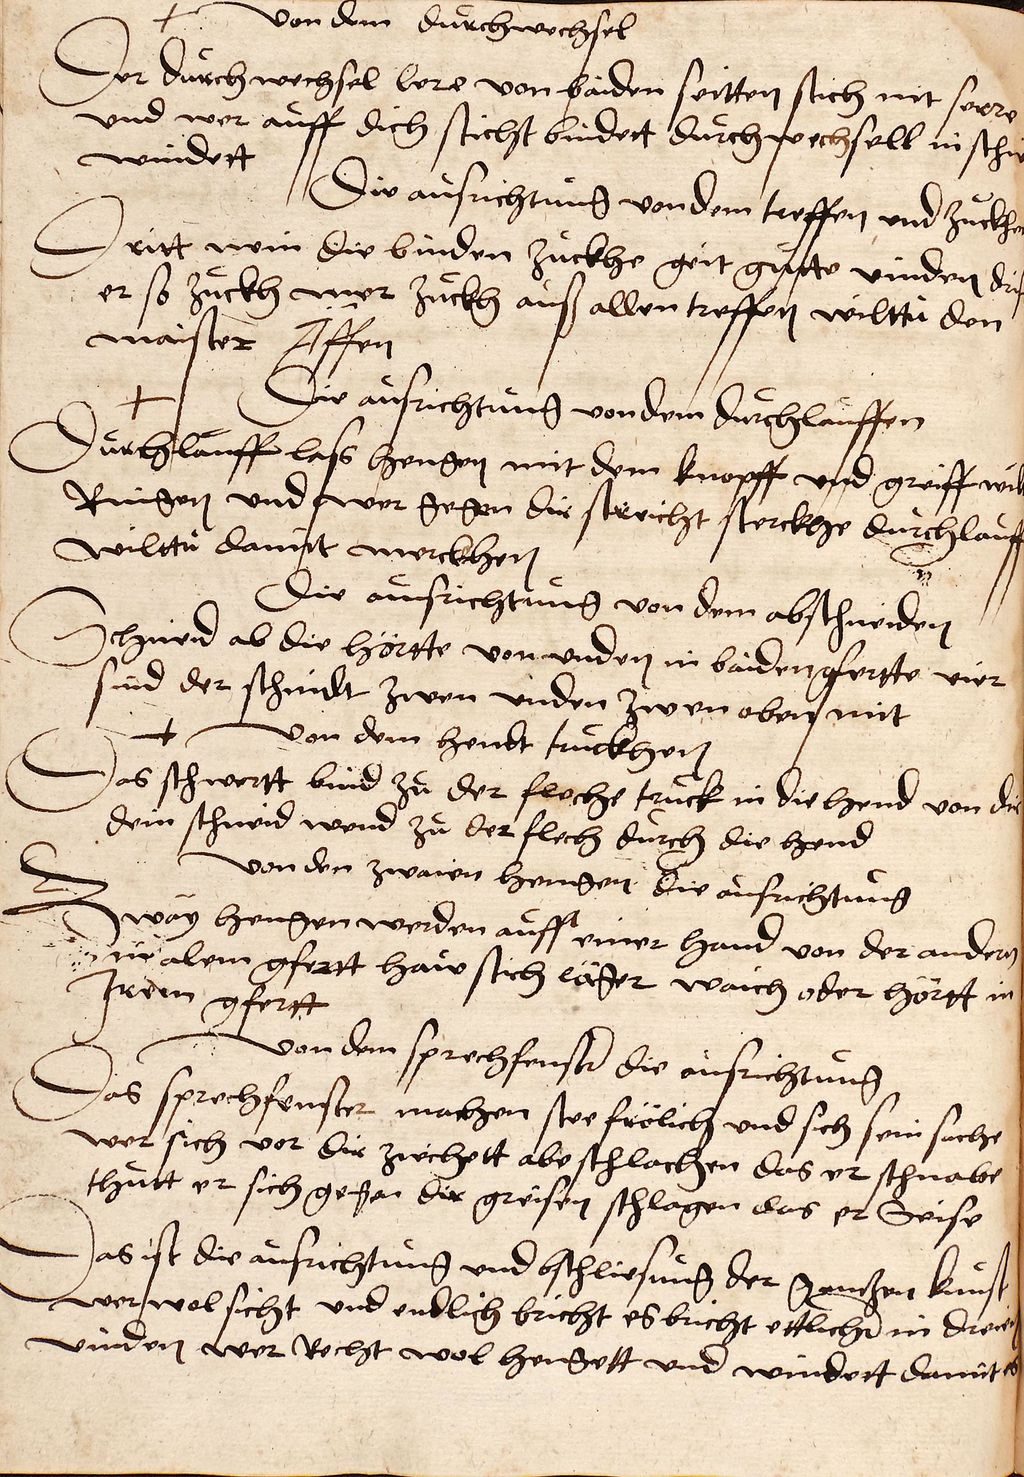 von dem durchwechsel
Der durchwechsel lere von baiden seitten stich mit serre
und wer auff dich sticht bindett durchwechsell in schir
windett
Die ausrichtung von dem treffen und zuckhen
Dritt nein die binden zuckhe geit gutte vinden
er so zuckh mer zuckh auß allen treffen wilttu den
maister Äffen
Die ausrichtung von dem durchlauffen
Durchlauff lass hengen mit dem knopff und greiff wilt
Ringen und wer gegen dir streicht sterckhe durchlauff
wilttu damit merckhen
Die ausrichtung von dem abschneiden
Schneid ab die hörtte von unden in baiden gfertte vier
sind der schnidt zwen unden zwen oben mit
von dem hendt truckhen
Das schwertt bind zu der fleche truck in die hend von die
dein schneid wend zu der flech durch die hend
von den zwaien hengen die ausrichtung
Zway hengen werden auff einer hand von der andern
in alem gfertt haw stich läger waich oder hörtt in
Irem gfertt
von dem sprechfenster die ausrichtung
Das sprechfenster machen stee frölich und sich sein sache
wer sich vor dir ziechett abe schlachen das er schnabe
thutt er sich gegen dir greisen schlagen das er Seise
Das ist die ausrichtung und bschliesung der gantzen kunst
wer wol sicht und endlich bricht es bricht ettlichs in dreien
vinden wer Recht wol hengett und windett damit es